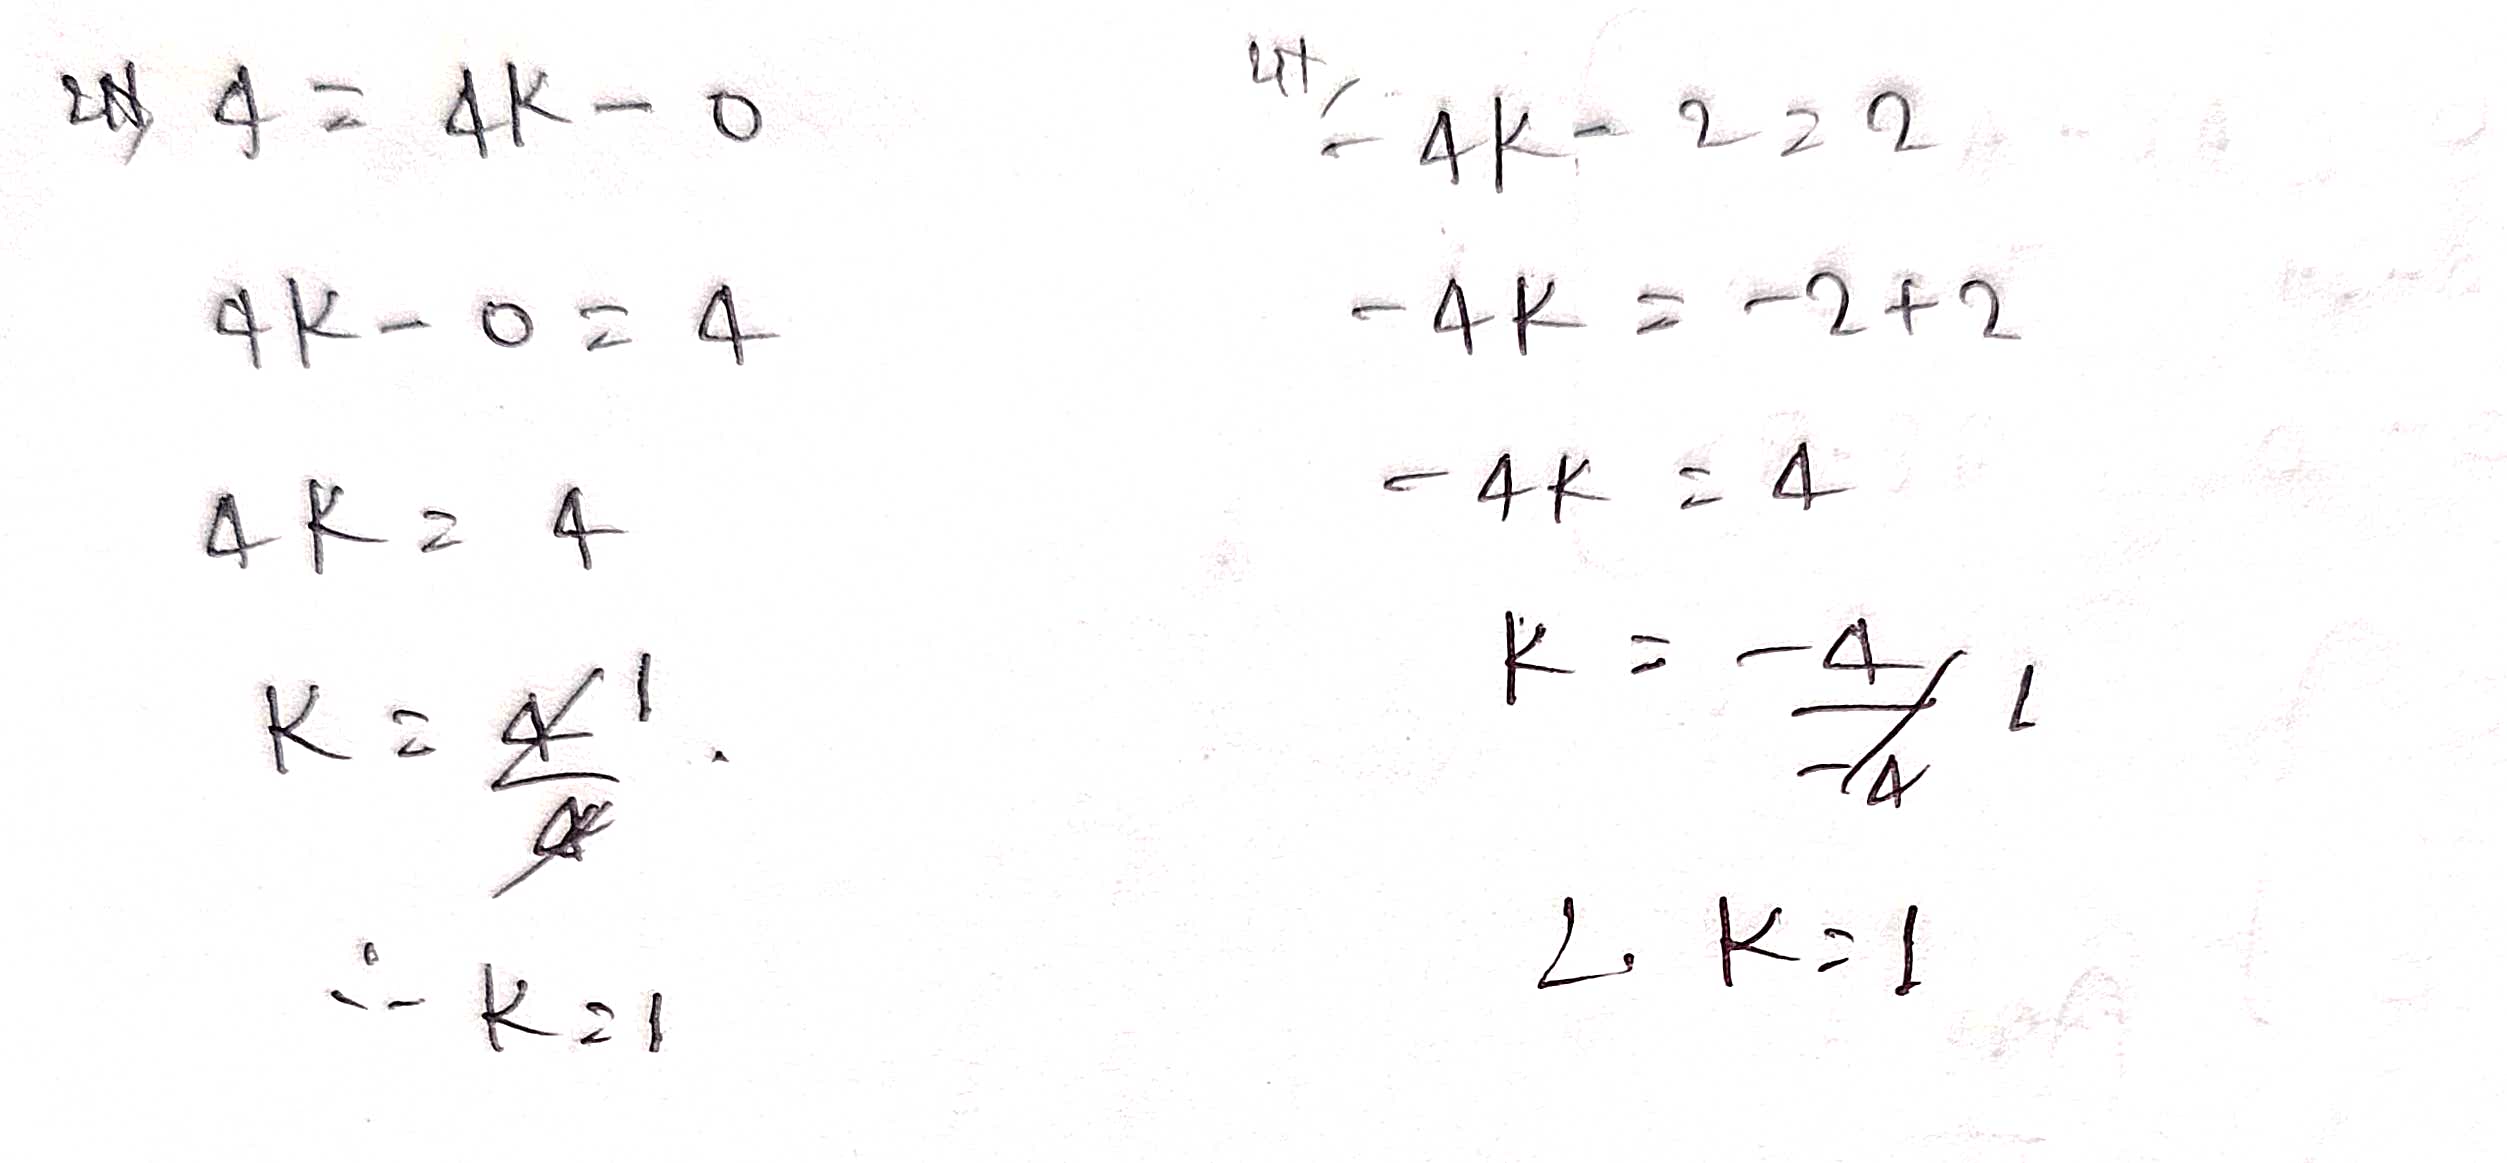 4 = 4K - 0
4K - 0 = 4
4K = 4
K = 4/4 1.
∴ K = 1
- 4K - 2 = 2
- 4K = -2 + 2
- 4K = 4
K = -4/-4 1
∴ K = 1